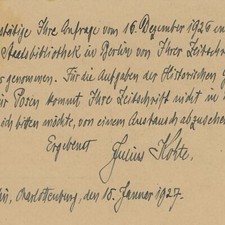 stätige Ihre Anfrage vom 16. Dezember 1926 in
Staatsbibliothek in Berlin von Ihrer Zeitschr
genommen. Für die Aufgaben des Historischen G
ür Posen kommt Ihre Zeitschrift nicht in
ich bitten möchte, von einem Austausch abzusehe
Ergebenst
Julius Kohte.
Charlottenburg, den 18. Januar 1927.